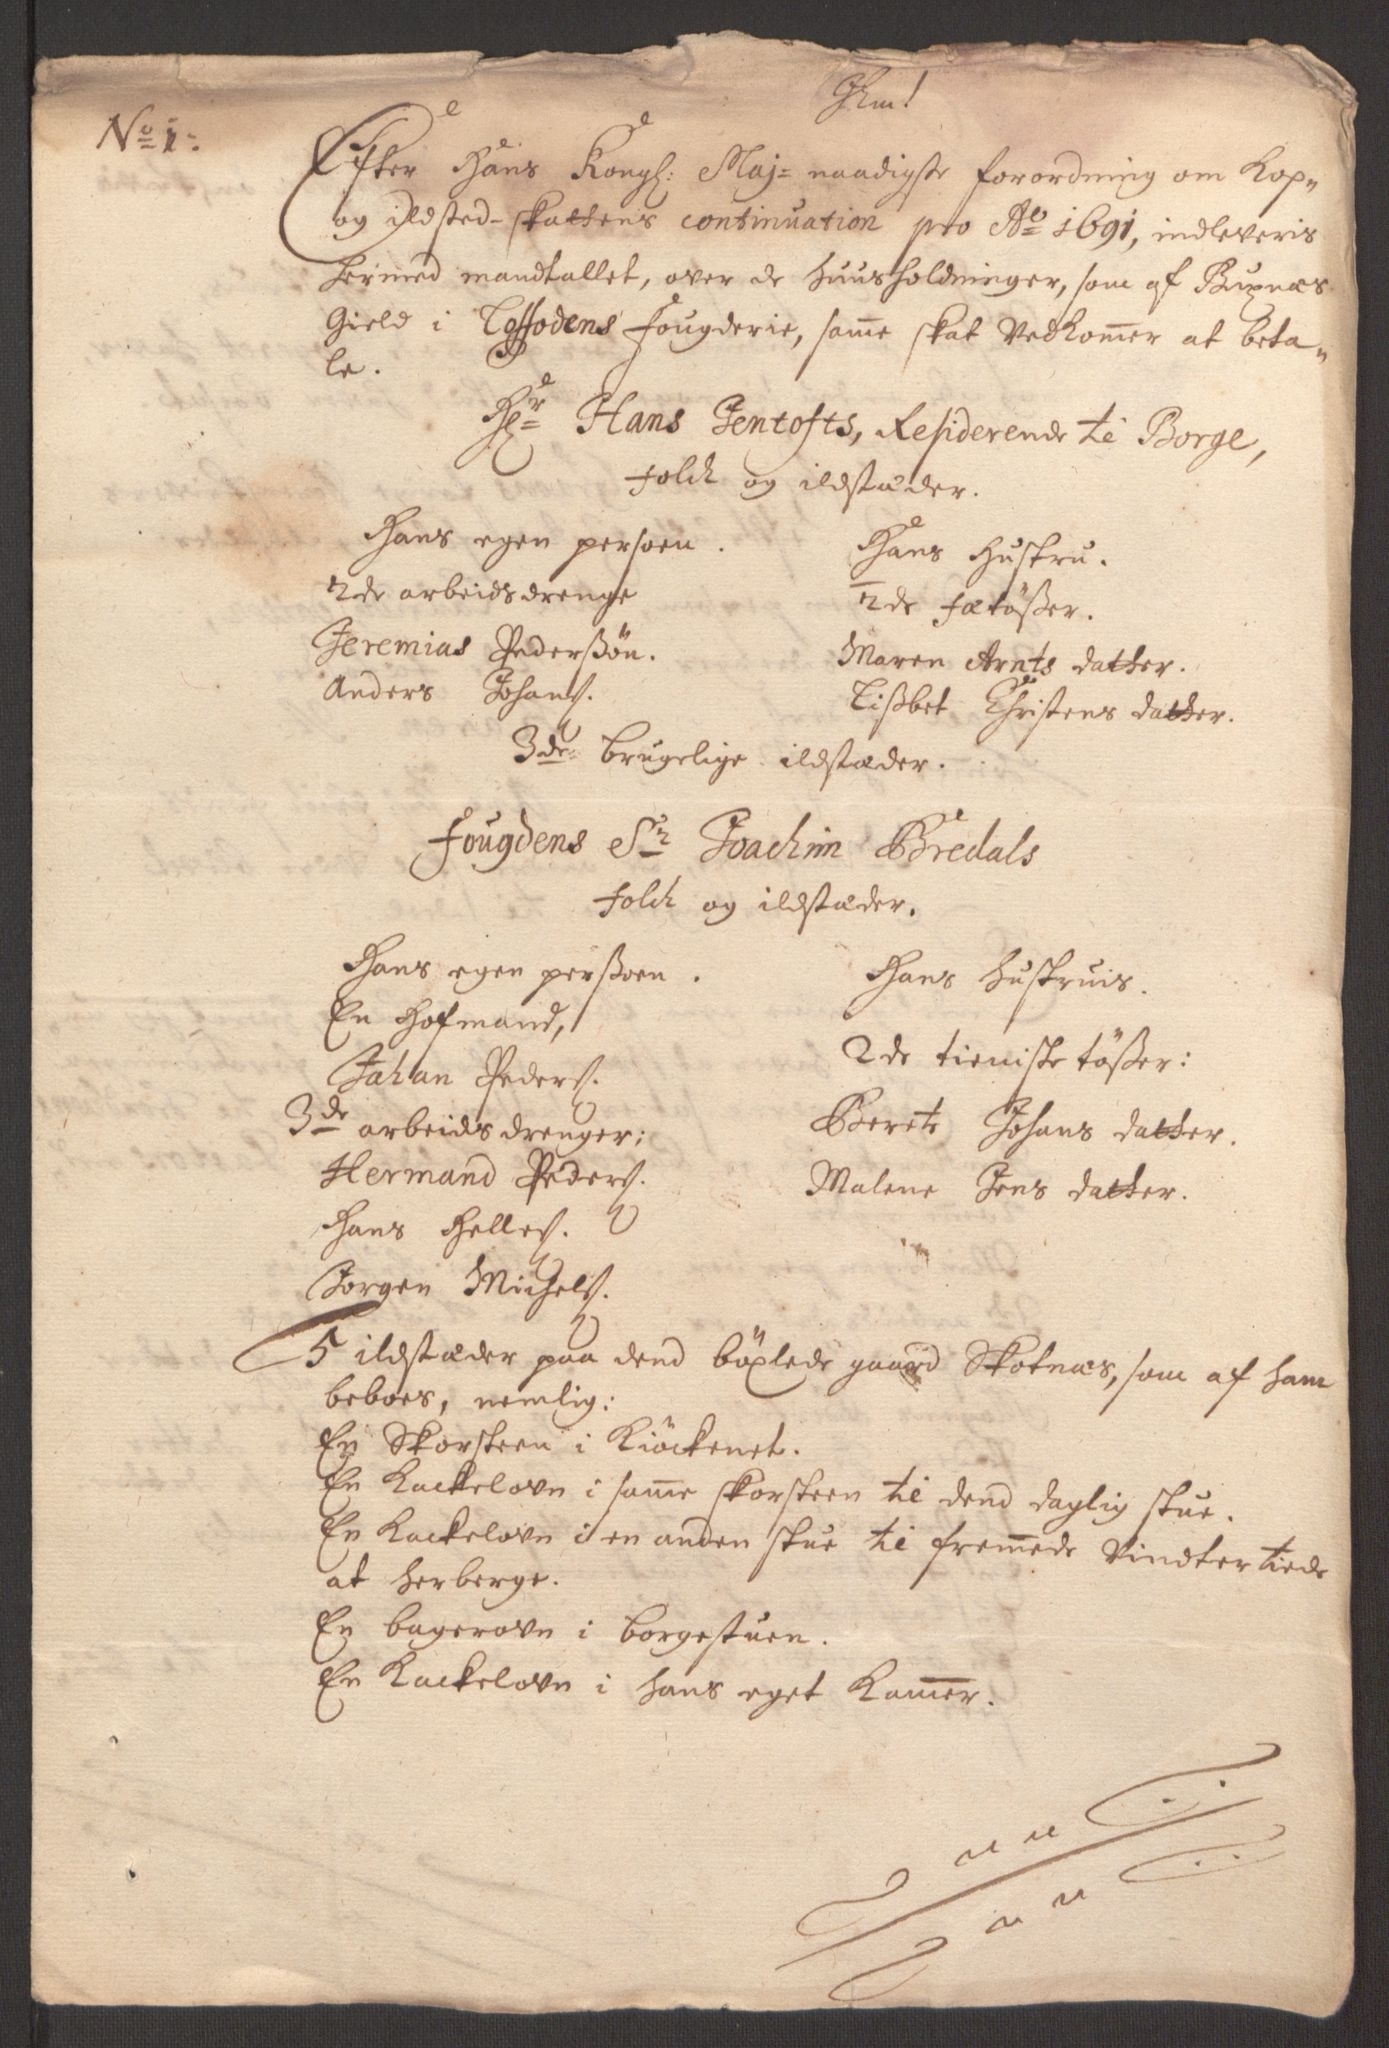 No 1:
Efter Hans Kongl: Maj= naadigste forordning om Kop=
og ildsted-skattens continuation pro Ao 1691, indleveris
hermed mandtallet, over de huusholdninger, som af Buxnæs
Gield i Loffodens Fougderie, samme skat vedkommer at beta=
le.
Hr Hans Jentofts, Residerende til Borge,
folch og ildstæder.
Hans egen persoen.
Hans Hustru.
2de arbeidsdrenge
2de fætøsser.
Jeremias Pederssøn.
Maren Arnts datter.
Anders Johans.
Lissbet Christens datter.
3de brugelige ildstæder.
Fougdens Sr Joachim Bredals
folch og ildstæder.
Hans egen perssoen.
Hans hustruis.
En Hofmand,
2de tieniste tøsser:
Johan Peders.
3de arbeidsdrenger:
Berete Johans datter.
Hermand Peders.
Malene Jens datter.
Hans Helles.
Jorgen Michels.
5 ildstæder paa dend böxlede gaard Skotnæs, som af ham
beboes, nemlig:
En Skorsteen i Kiöckenet.
En Kackelovn i samme skorsteen til dend daglig stue.
En Kackelovn i en anden stue til fremmede Vindter tiede
at herberge.
En bagerovn i borgestuen.
En Kackelovn i hans eget Kammer.